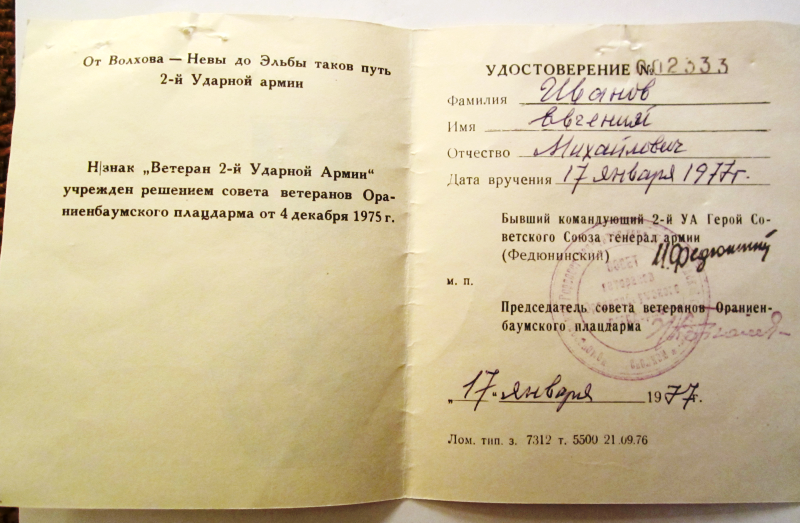 От Волхова — Невы до Эльбы таков путь
2-й Ударной армии
Нзнак „Ветеран 2-й Ударной Армии“
учрежден решением совета ветеранов Ора-
ниенбаумского плацдарма от 4 декабря 1975 г.
УДОСТОВЕРЕНИЕ № 002333
Фамилия Иванов
Имя Евгений
Отчество Михайлович
Дата вручения 17 января 1977г.
Бывший командующий 2-й УА Герой Со-
ветского Союза генерал армии
(Федюнинский) И.Федюнинский
м. п.
Председатель совета ветеранов Ораниен-
баумского плацдарма
„17“ января 1977г.
Лом. тип. з. 7312 т. 5500 21.09.76